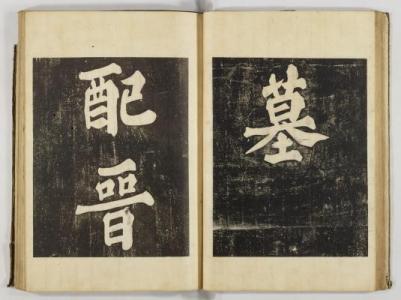 墓
配晉